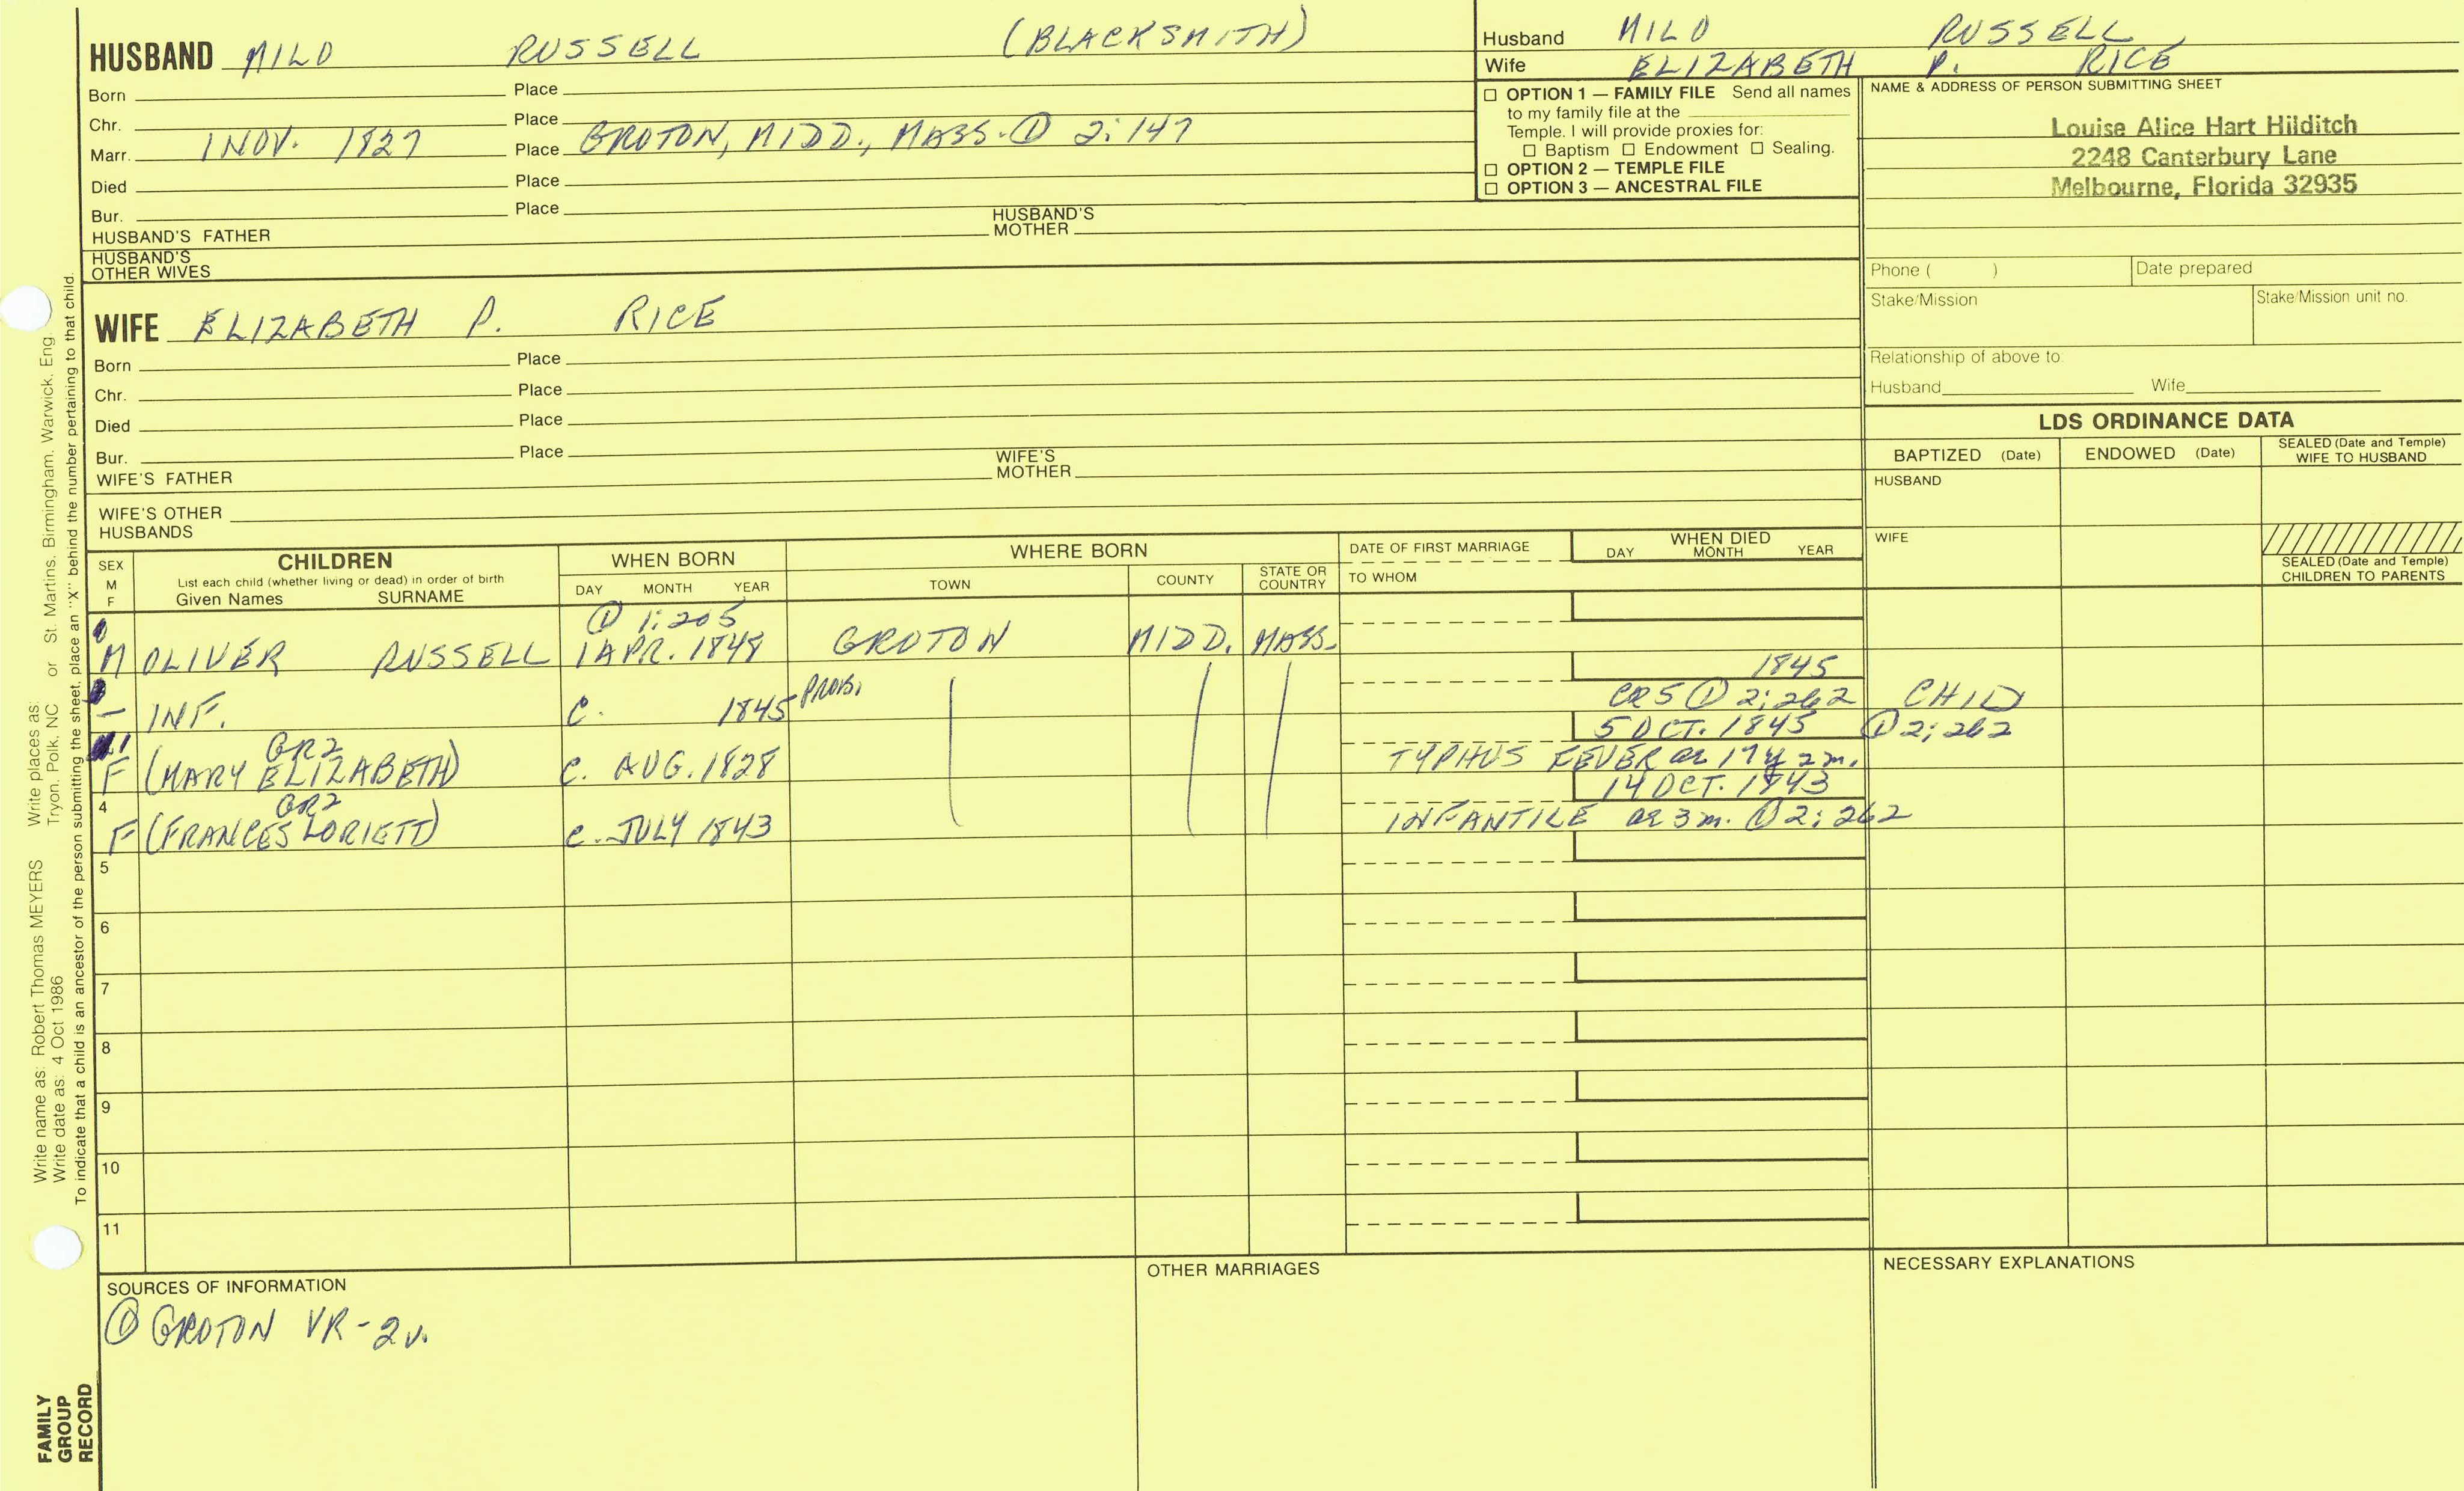 HUSBAND MILO RUSSELL (BLACKSMITH)
Born Place
Chr. Place
Marr. 1 NOV. 1827 Place GROTON, MIDD., MASS. ① 2:147
Died Place
Bur. Place
HUSBAND'S FATHER HUSBAND'S MOTHER
HUSBAND'S OTHER WIVES
WIFE ELIZABETH P. RICE
Born Place
Chr. Place
Died Place
Bur. Place
WIFE'S FATHER WIFE'S MOTHER
WIFE'S OTHER HUSBANDS
Husband MILO RUSSELL
Wife ELIZABETH P. RICE
☐ OPTION 1 — FAMILY FILE Send all names
to my family file at the
Temple. I will provide proxies for:
☐ Baptism ☐ Endowment ☐ Sealing.
☐ OPTION 2 — TEMPLE FILE
☐ OPTION 3 — ANCESTRAL FILE
NAME & ADDRESS OF PERSON SUBMITTING SHEET
Louise Alice Hart Hilditch
2248 Canterbury Lane
Melbourne, Florida 32935
Phone ( ) Date prepared
Stake/Mission Stake/Mission unit no.
Relationship of above to:
Husband Wife
LDS ORDINANCE DATA
BAPTIZED (Date) ENDOWED (Date) SEALED (Date and Temple) WIFE TO HUSBAND
HUSBAND
WIFE
SEALED (Date and Temple) CHILDREN TO PARENTS
SEX M F
CHILDREN
List each child (whether living or dead) in order of birth
Given Names SURNAME
WHEN BORN
DAY MONTH YEAR
WHERE BORN
TOWN COUNTY STATE OR COUNTRY
DATE OF FIRST MARRIAGE
TO WHOM
WHEN DIED
DAY MONTH YEAR
① 1:205
M OLIVER RUSSELL 1 APR. 1848 GROTON MIDD. MASS.
1845
— INF. C. 1845 PROB. CR5 ① 2:262 CHILD
GR2 5 OCT. 1845 ① 2:262
F (MARY ELIZABETH) C. AUG. 1828 TYPHUS FEVER ae 17y 2m.
4 GR2 14 OCT. 1843
F (FRANCES LORIETT) C. JULY 1843 INFANTILE ae 3m. ① 2:262
5
6
7
8
9
10
11
SOURCES OF INFORMATION
① GROTON VR-2v.
OTHER MARRIAGES
NECESSARY EXPLANATIONS
Write name as: Robert Thomas MEYERS Write places as:
Write date as: 4 Oct 1986 Tryon, Polk, NC or St. Martins, Birmingham, Warwick, Eng.
To indicate that a child is an ancestor of the person submitting the sheet, place an "X" behind the number pertaining to that child.
FAMILY
GROUP
RECORD